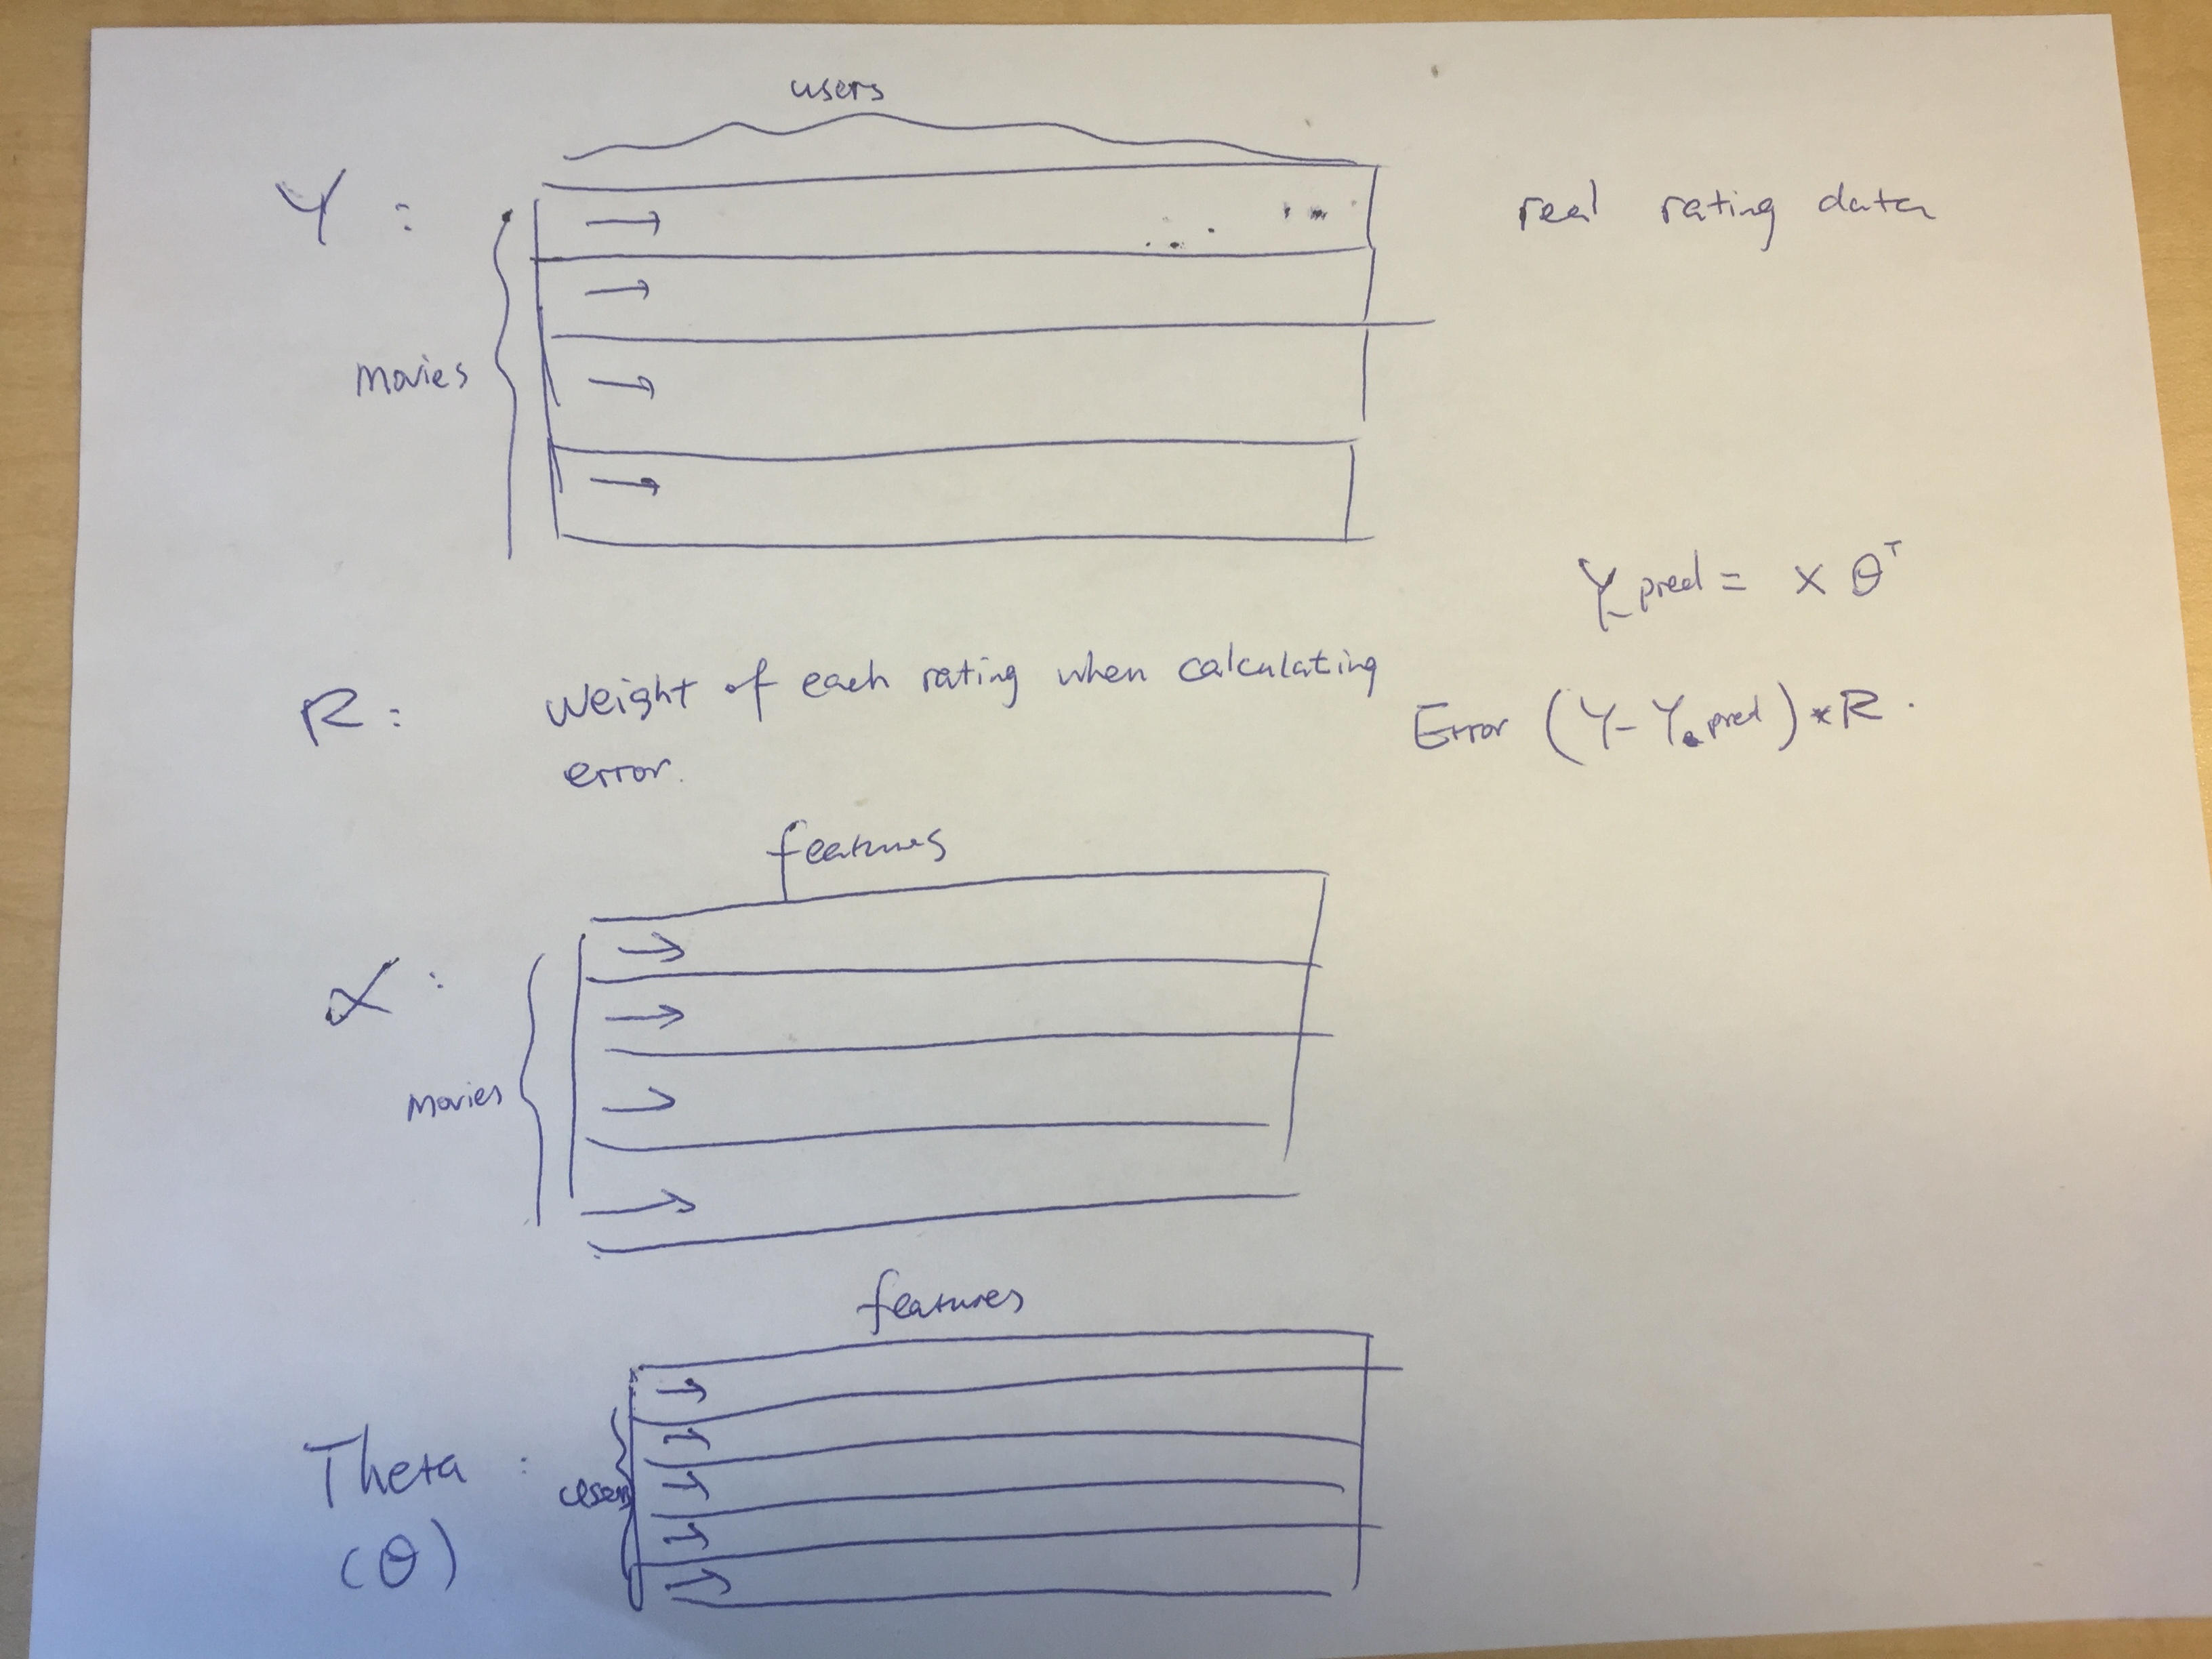 users
Y :
real rating data
movies
Y_pred = X θᵀ
R : weight of each rating when calculating
error.
Error (Y - Y_pred) * R .
features
X :
movies
features
Theta :
users
(θ)